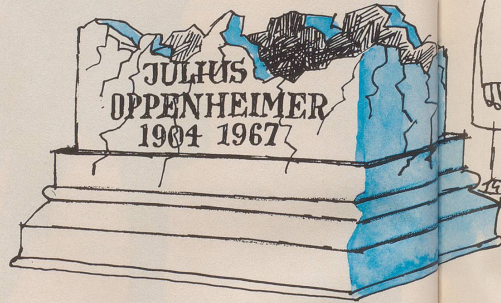 JULIUS
OPPENHEIMER
1904 1967